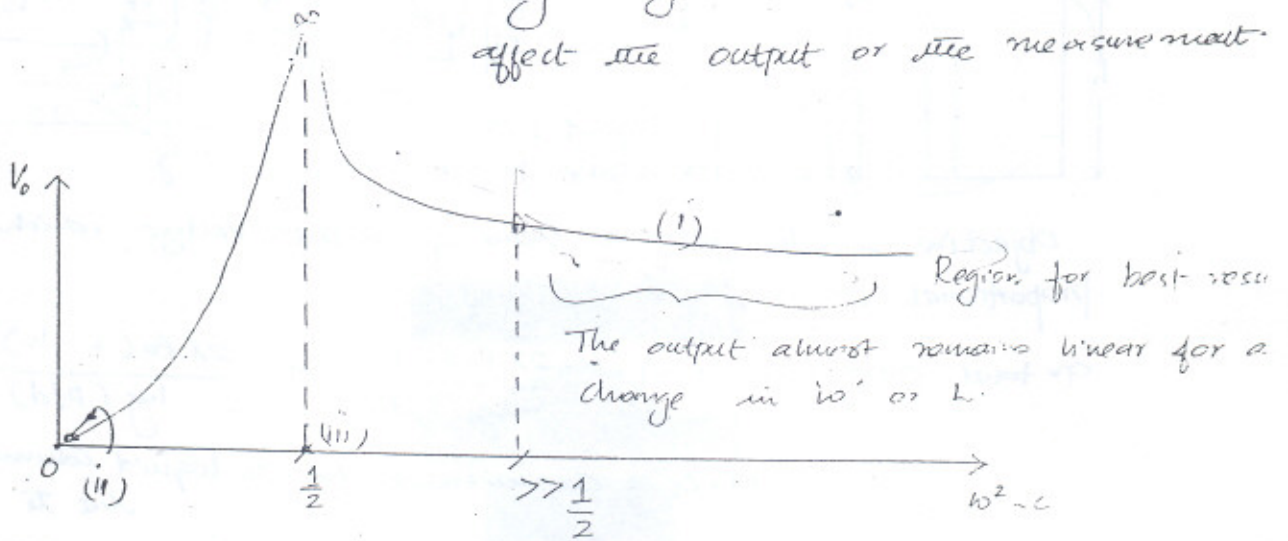 affect the output or the measurement.
V₀
(i)
Region for best
The output almost remains linear for a
change in ω or L.
(iii)
0
(ii)
1/2
>> 1/2
ω²